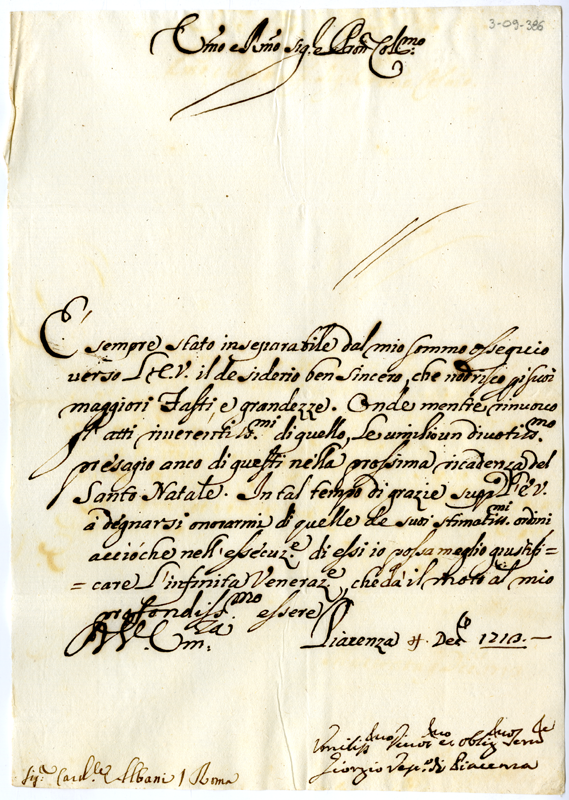 3-09-386
Emo e Rmo Sig.e Pron Colmo:
È sempre stato inseparabile dal mio sommo ossequio
verso L'E.V. il desiderio ben sincero, che nodrisco di suoi
maggiori Fasti e grandezze. Onde mentre rinuovo
gl'atti riverentiss.mi di quello, Le umilio un divotiss.mo
presagio anco di questi nella prossima ricadenza del
Santo Natale. In tal tempo di grazie supp.o L'E.V.
à degnarsi onorarmi di quelle de suoi stimatiss.mi ordini
acciòche nell'essecuz.e di essi io possa meglio giustifi=
=care L'infinita Veneraz.e, che dà il moto al mio
profondiss.mo essere
Di V. Em.za Piacenza Dec.e 1712.
Umiliss.mo Divot.mo et oblig.mo Serv.e
Giorgio Vesc.o di Piacenza
Sig.r Card.le Albani / Roma